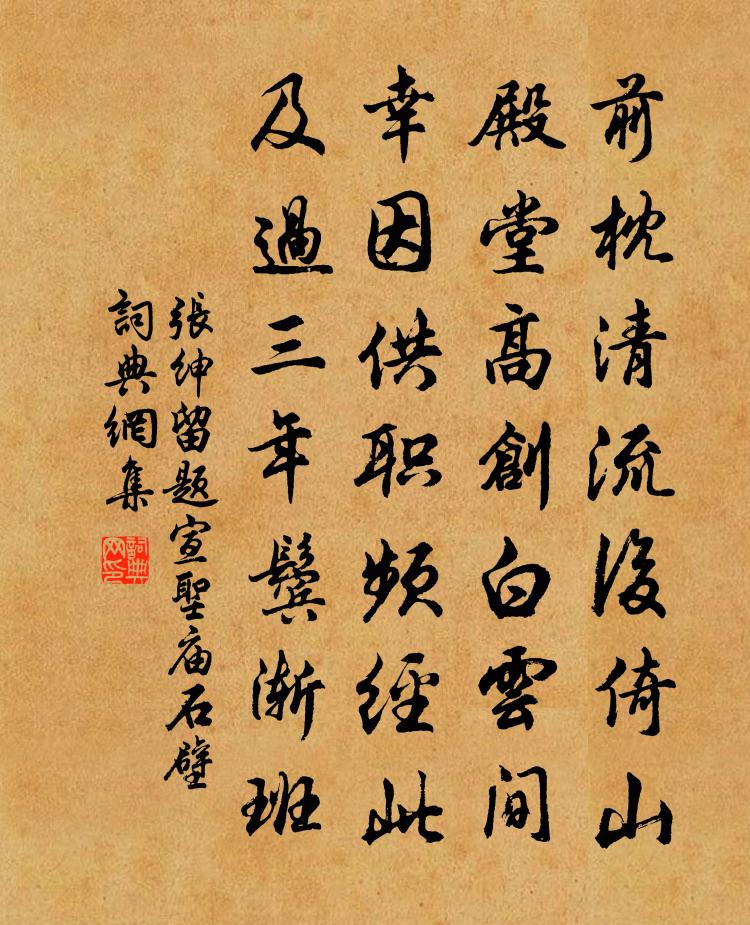 前枕清流後倚山
殿堂高創白雲間
幸因供职頻經此
及過三年鬓漸班
張紳留题宣聖庙石壁
詞典網集
詞典
网印